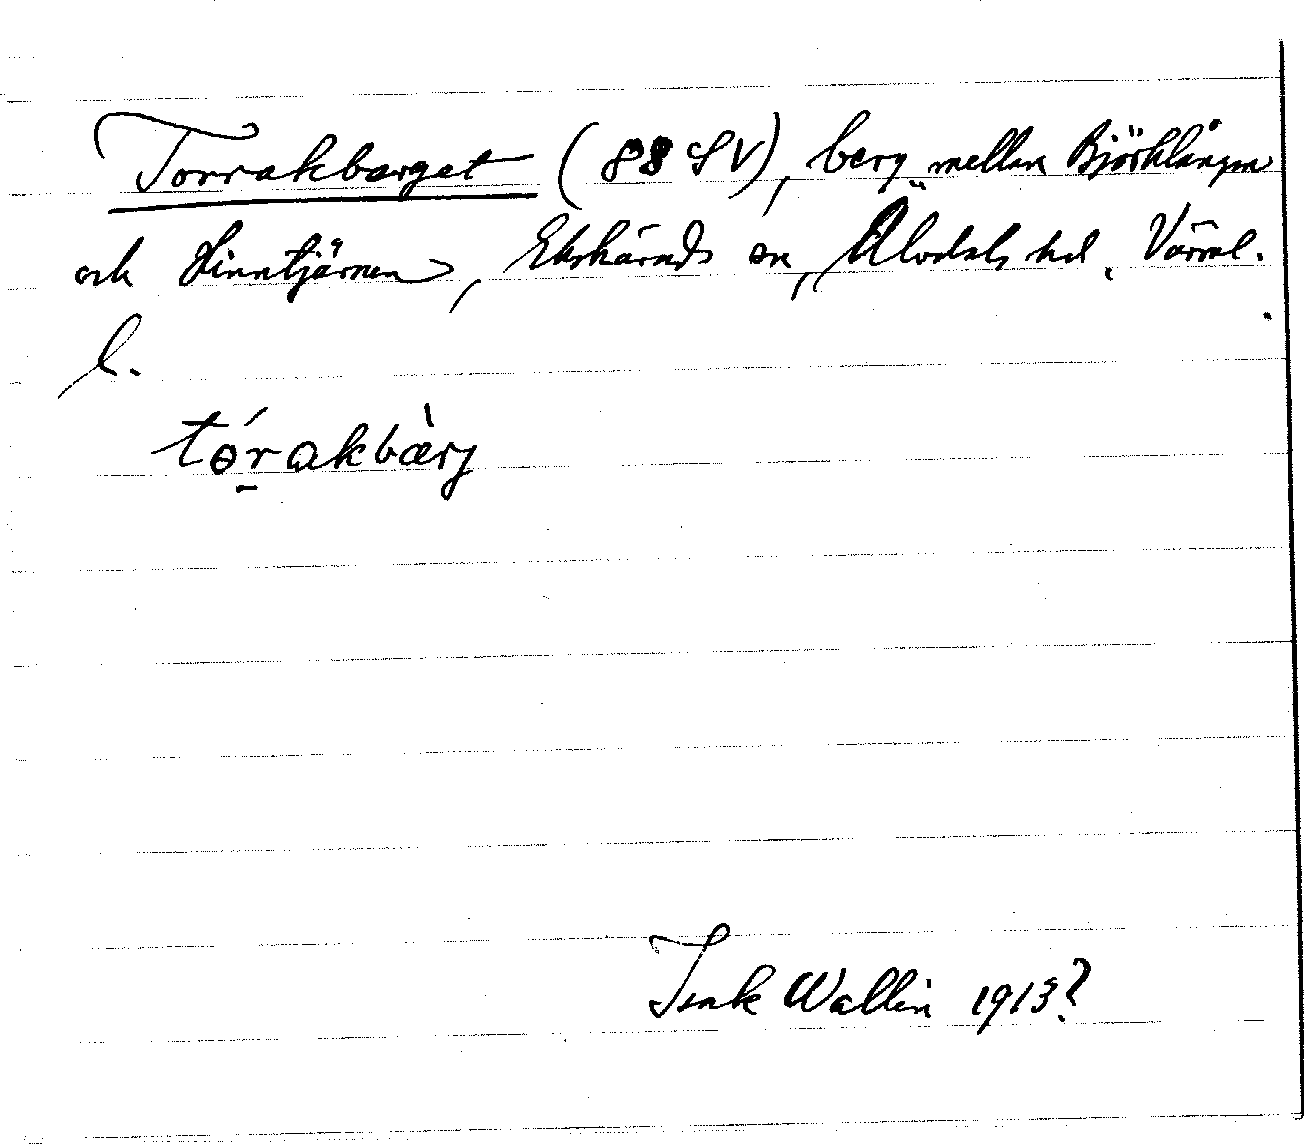 Torrakberget (88 SV), berg mellan Björklången
och Finntjärnen, Ekshärads sn, Älvdals hd, Värml.
l.
tórakbàrj
Isak Wallin 1913?